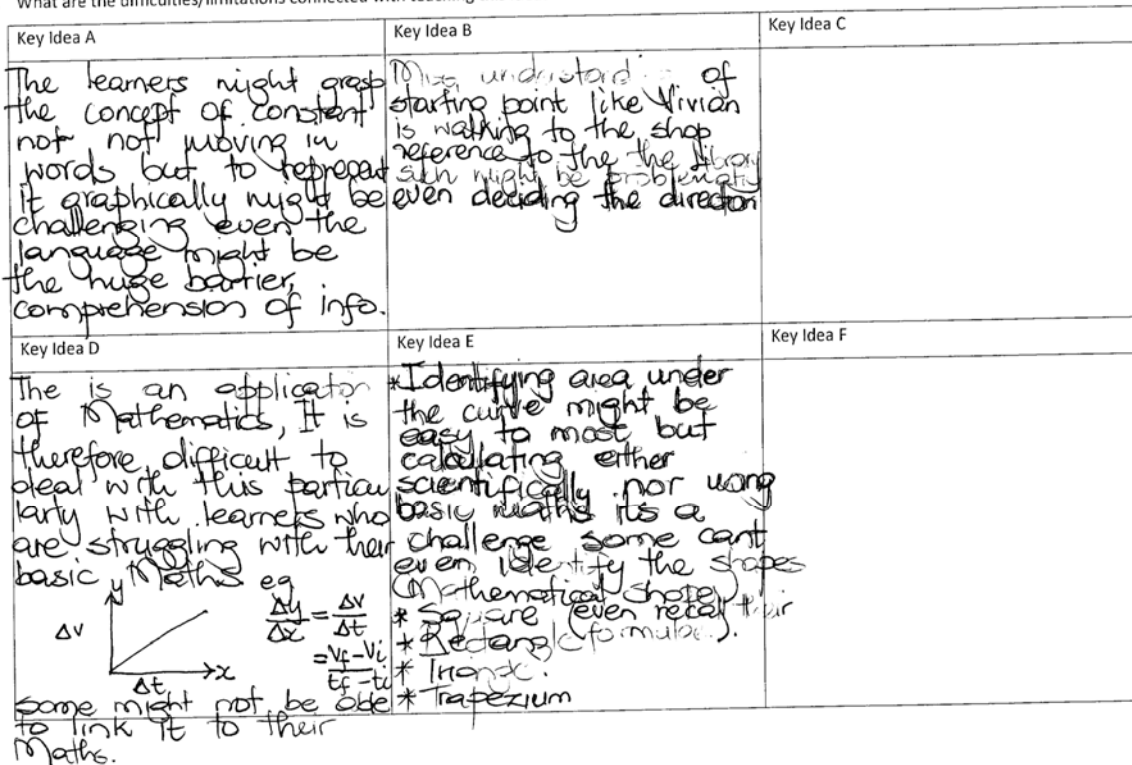 What are the difficulties/limitations connected with teaching
Key Idea A
The learners might grasp
the concept of constant
not not moving in
words but to represent
it graphically might be
challenging even the
language might be
the huge barrier,
comprehension of info.
Key Idea B
of
starting point like Vivian
is walking to the shop
reference to the the library
such might be problematic
even deciding the direction
Key Idea C
Key Idea D
The is an application
of Mathematics, It is
therefore difficult to
deal with this particu
larly with learners who
are struggling with their
basic Maths eg
y
Δv
x
Δt
Δy/Δx = Δv/Δt
= vf-vi/tf-ti
some might not be able
to link it to their
Maths.
Key Idea E
* Identifying area under
the curve might be
easy to most but
calculating either
scientifically nor using
basic maths its a
challenge some cant
even identify the shapes
(Mathematical shape)
* Square (even recall their
* Rectangle formulae).
* Triangle.
* Trapezium
Key Idea F